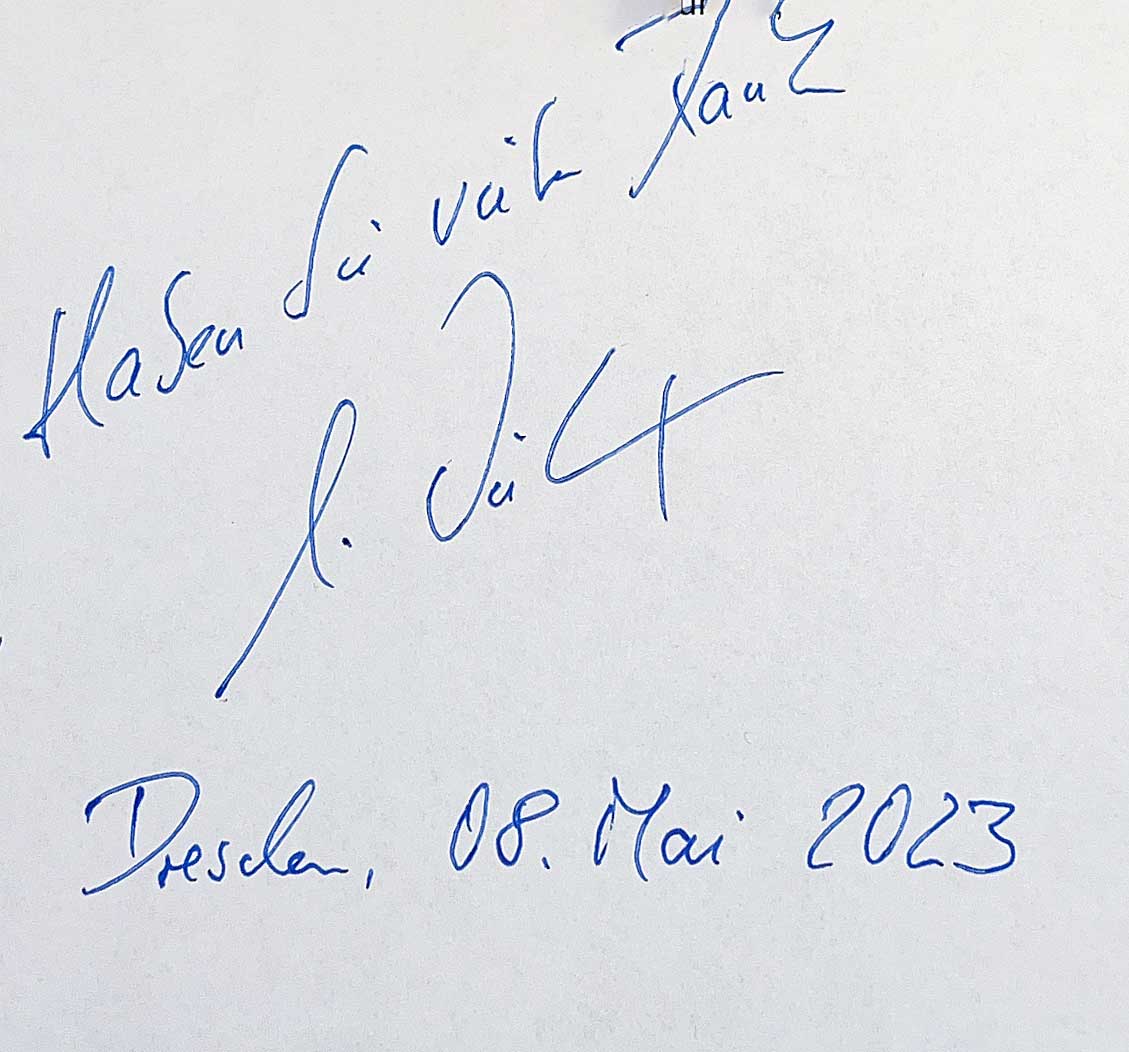 Haben Sie vielen Dank
Dresden, 08. Mai 2023